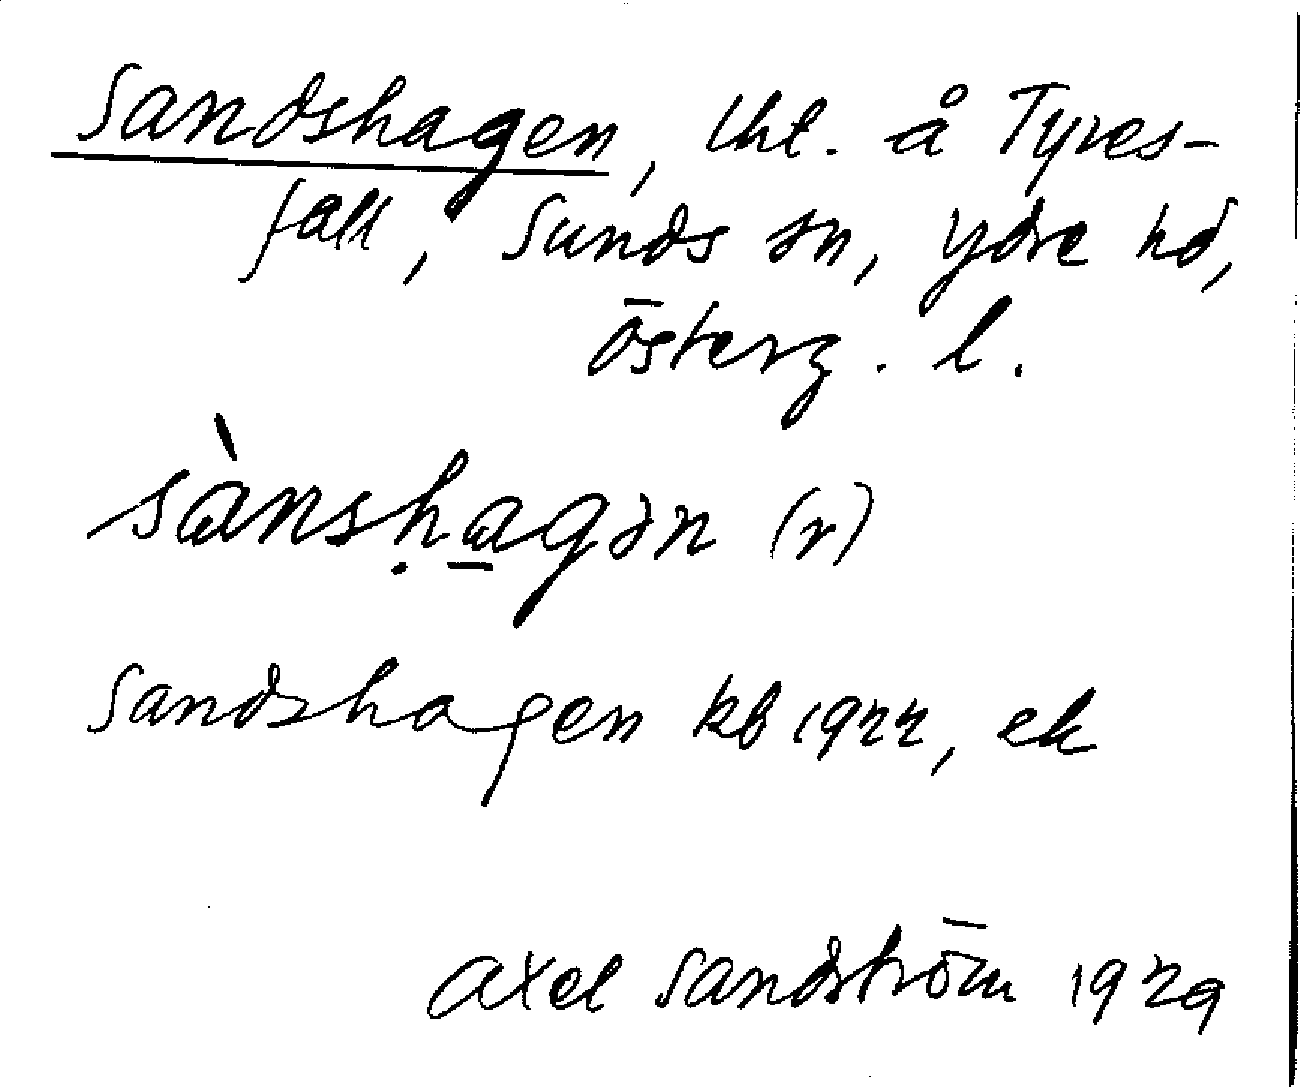 Sandshagen, lht. å Tyres-
fall, Sunds sn, Ydre hd,
Österg. l.
sànsḥa̲gən (r)
Sandshagen kb 1922, ek
Axel Sandström 1929